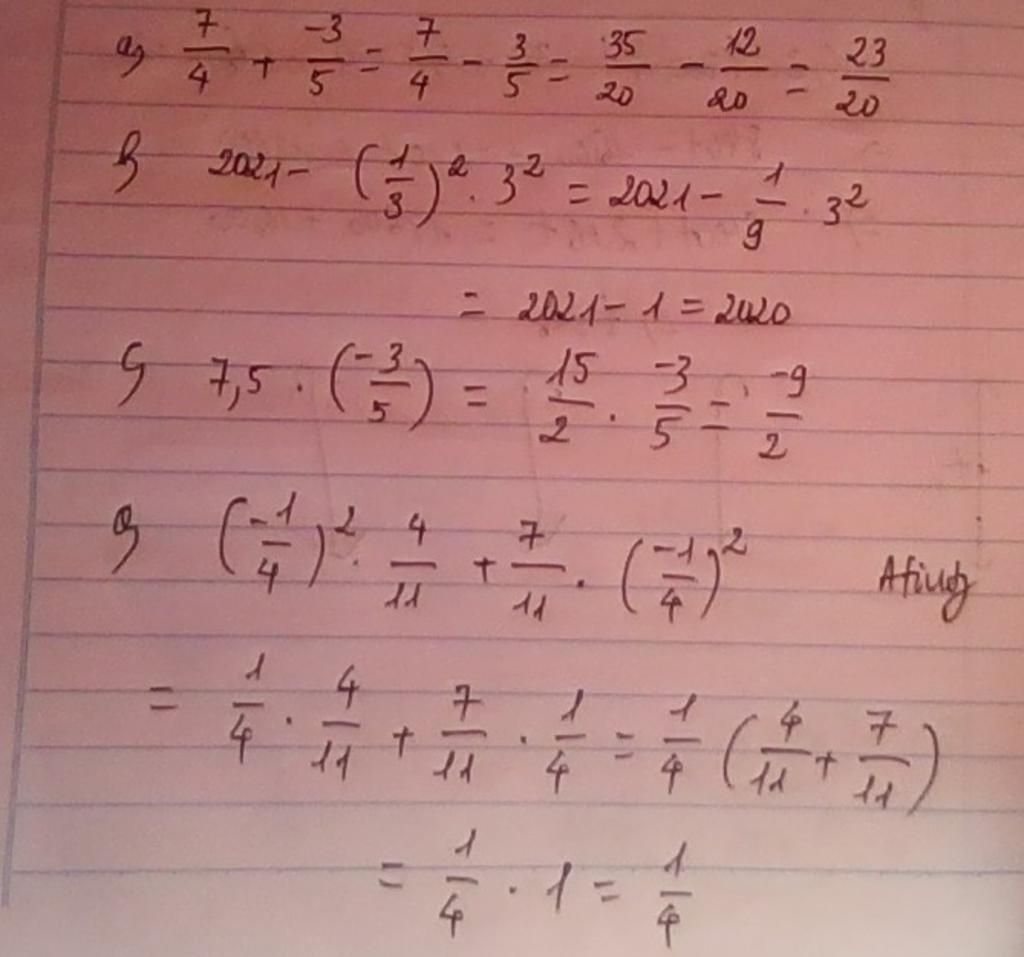 a) 7/4 + -3/5 = 7/4 - 3/5 = 35/20 - 12/20 = 23/20
b) 2021 - (1/3)² . 3² = 2021 - 1/9 . 3²
= 2021 - 1 = 2020
c) 7,5 . (-3/5) = 15/2 . -3/5 = -9/2
d) (-1/4)² . 4/11 + 7/11 . (-1/4)²
= 1/4 . 4/11 + 7/11 . 1/4 = 1/4 (4/11 + 7/11)
= 1/4 . 1 = 1/4